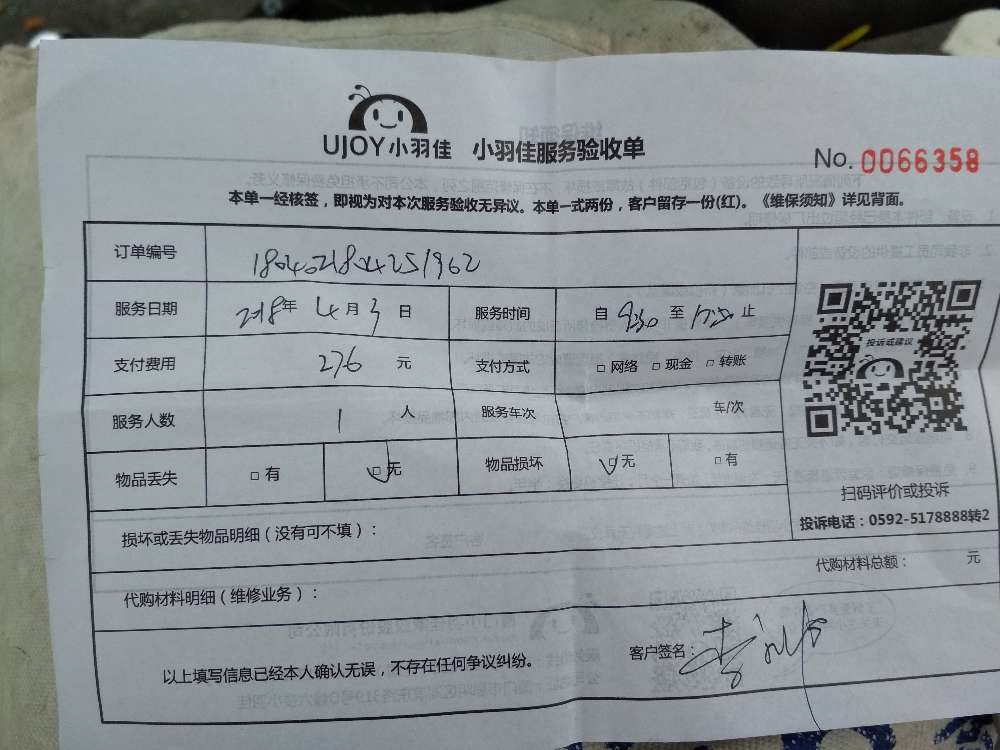 UJOY小羽佳 小羽佳服务验收单
No. 0066358
本单一经核签，即视为对本次服务验收无异议。本单一式两份，客户留存一份(红)。《维保须知》详见背面。
订单编号 18040218044251962
服务日期 2018年 4月 3日 服务时间 自 8:30 至 止
支付费用 276 元 支付方式 □ 网络 □ 现金 □ 转账
投诉或建议
服务人数 1 人 服务车次 车/次
物品丢失 □ 有 □ 无 物品损坏 □ 无 □ 有
扫码评价或投诉
投诉电话：0592-5178888转2
损坏或丢失物品明细（没有可不填）：
代购材料明细（维修业务）： 代购材料总额： 元
以上填写信息已经本人确认无误，不存在任何争议纠纷。 客户签名：李